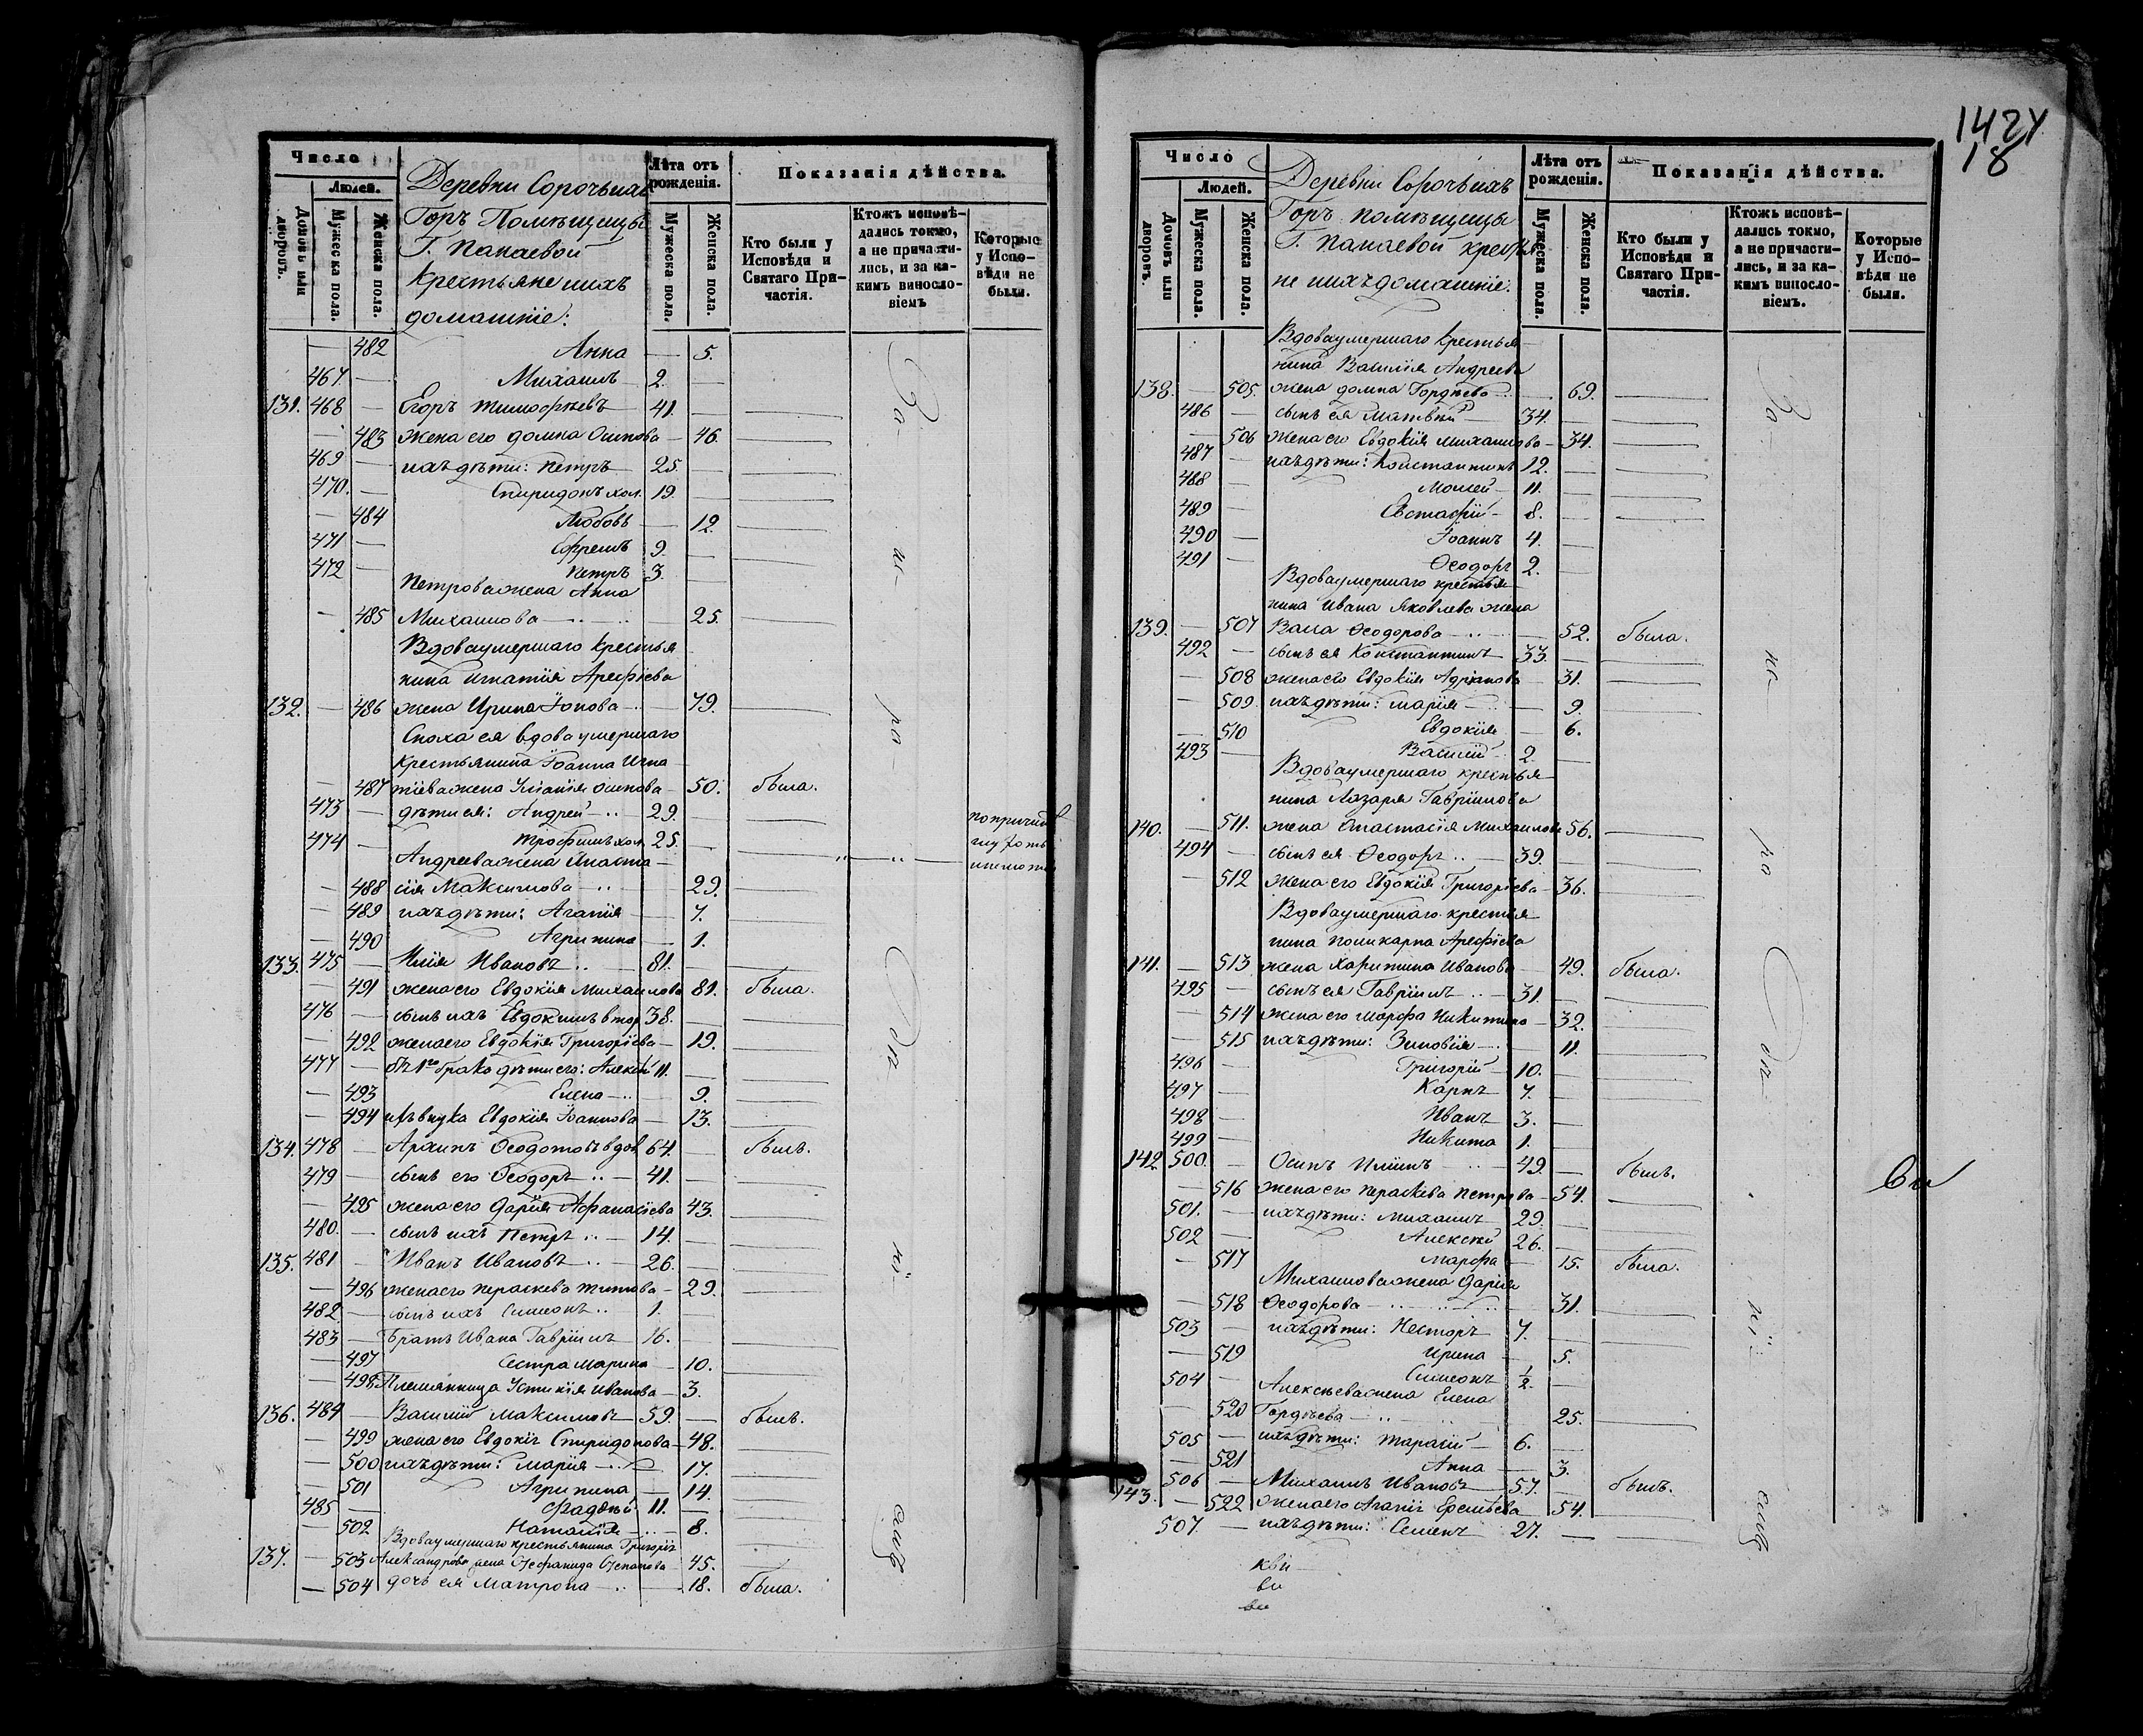 Число
Людей.
Домовъ или дворовъ.
Мужеска пола.
Женска пола.
Деревни Сорочьихъ
Горъ Помѣщицы
Г. Панаевой
Крестьяне и ихъ
домашніе:
Лѣта отъ рожденія.
Мужеска пола.
Женска пола.
Показанія дѣйства.
Кто были у Исповѣди и Святаго Причастія.
Ктожъ исповѣдались токмо, а не причастились, и за какимъ винословіемъ
Которые у Исповѣди не были.
— 482 Анна — 5.
467. — Михаилъ 2. —
131. 468 — Егоръ Тимофѣевъ 41. —
— 483 жена его Домна Осипова — 46.
469 — ихъ дѣти: Петръ 25. —
470. — Спиридонъ хол. 19. —
— 484 Любовь — 12.
471 — Ефремъ 9. —
472 — Петръ 3. —
Петрова жена Анна
— 485 Михаилова — 25.
Вдова умершаго крестья
нина Игнатія Арефіева
132. — 486 жена Ирина Іонова — 79.
Сноха ея вдова умершаго
крестьянина Іоанна Игна
— 487 тіева жена Осипова — 50. была.
473 — дѣти ея: Андрей 29. —
474 — Трофимъ хол. 25. —
Андреева жена Анаста
— 488 сія Максимова — 29.
— 489 ихъ дѣти: Агапія — 7.
— 490 Агрипина — 1.
133. 475 — Илія Ивановъ 81. —
— 491 жена его Евдокія Михаилова 81. была.
476 — сынъ ихъ Евдокимъ втор 38. —
— 492 жена его Евдокія Григоріева — 19.
477 — отъ 1го брака дѣти его: Алексій 11. —
— 493 Елена — 9.
— 494 Евдокія Іоаннова — 13.
134. 478 — Архипъ Ѳеодотовъ вдов. 64. — былъ.
479 — сынъ его Ѳеодоръ 41. —
— 495 жена его Дарія Афанасіева 43.
480. — сынъ ихъ Петръ 14. —
135. 481 — Иванъ Ивановъ 26. —
— 496 жена его Параскева Титова — 29.
482 — сынъ ихъ Симеонъ 1. —
483 — братъ Ивана Гавріилъ 16. —
— 497 Сестра Марина — 10.
— 498 Племянница Устинія Иванова — 3.
136. 484 — Василій Максимовъ 59. — былъ.
— 499 жена его Евдокія Спиридонова — 48.
— 500 ихъ дѣти: Марія — 17.
— 501 Агрипина — 14.
485 — Фадѣй 11. —
— 502 Наталія — 8.
Вдова умершаго крестьянина Григорія
137. — 503 Александрова жена Степанова — 45.
— 504 дочь ея Матрона — 18. была.
За-
и-
ро-
дъ
ні-
емъ
1424
18
Число
Людей.
Домовъ или дворовъ.
Мужеска пола.
Женска пола.
Деревни Сорочьихъ
Горъ помѣщицы
Г. Панаевой крестья
не и ихъ домашніе:
Лѣта отъ рожденія.
Мужеска пола.
Женска пола.
Показанія дѣйства.
Кто были у Исповѣди и Святаго Причастія.
Ктожъ исповѣдались токмо, а не причастились, и за какимъ винословіемъ.
Которые у Исповѣди не были.
Вдова умершаго крестья
нина Василія Андреева
138. — 505. жена Домна Гордѣева — 69.
486 — сынъ ея Матвѣй 34. —
— 506 жена его Евдокія Михаилова — 34.
487 — ихъ дѣти: Константинъ 12. —
488 — Моисей 11. —
489 — Евстафій 8. —
490 — Іоаннъ 4. —
491 — Ѳеодоръ 2. —
Вдова умершаго крестья
нина Ивана Яковлева жена
139. — 507 Васса Ѳеодорова — 52. была.
492 — сынъ ея Константинъ 33. —
— 508 жена его Евдокія Адріанова — 31.
— 509 ихъ дѣти: Марія — 9.
— 510 Евдокія — 6.
493 — Василій 2. —
Вдова умершаго крестья
нина Лазаря Гавріилова
140. — 511. жена Анастасія Михаилова 56.
494 — сынъ ея Ѳеодоръ 39. —
— 512 жена его Евдокія Григоріева — 36.
Вдова умершаго крестья
нина Поликарпа Арефіева
141. — 513 жена Харитина Иванова — 49. была.
495 — сынъ ея Гавріилъ 31. —
— 514 жена его Марфа Никитина — 32.
— 515 ихъ дѣти: Зиновія — 11.
496 — Григорій 10. —
497 — Карпъ 7. —
498 — Иванъ 3. —
499 — Никита 1. —
142 500. — Осипъ Илиинъ 49. — былъ.
— 516 жена его Параскева Петрова — 54.
501. — ихъ дѣти: Михаилъ 29. —
502 — Алексѣй 26. —
— 517 Марфа — 15. была.
Михаилова жена Дарія
— 518 Ѳеодорова — 31.
503 — ихъ дѣти: Несторъ 7. —
— 519 Ирина — 5.
504 — Симеонъ ½. —
Алексѣева жена Елена
— 520 Гордѣева — 25.
505 — ихъ дѣти: Тарасій 6. —
— 521 Анна — 3.
143. 506 — Михаилъ Ивановъ 57. — былъ.
— 522 жена его Агапія Еремѣева 54.
507. — ихъ дѣти: Семенъ 27. —
За-
и-
ро
дъ-
ні-
емъ